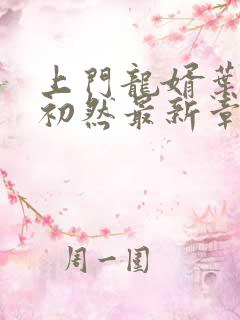 上門龍婿葉
初然最新章
周一圍